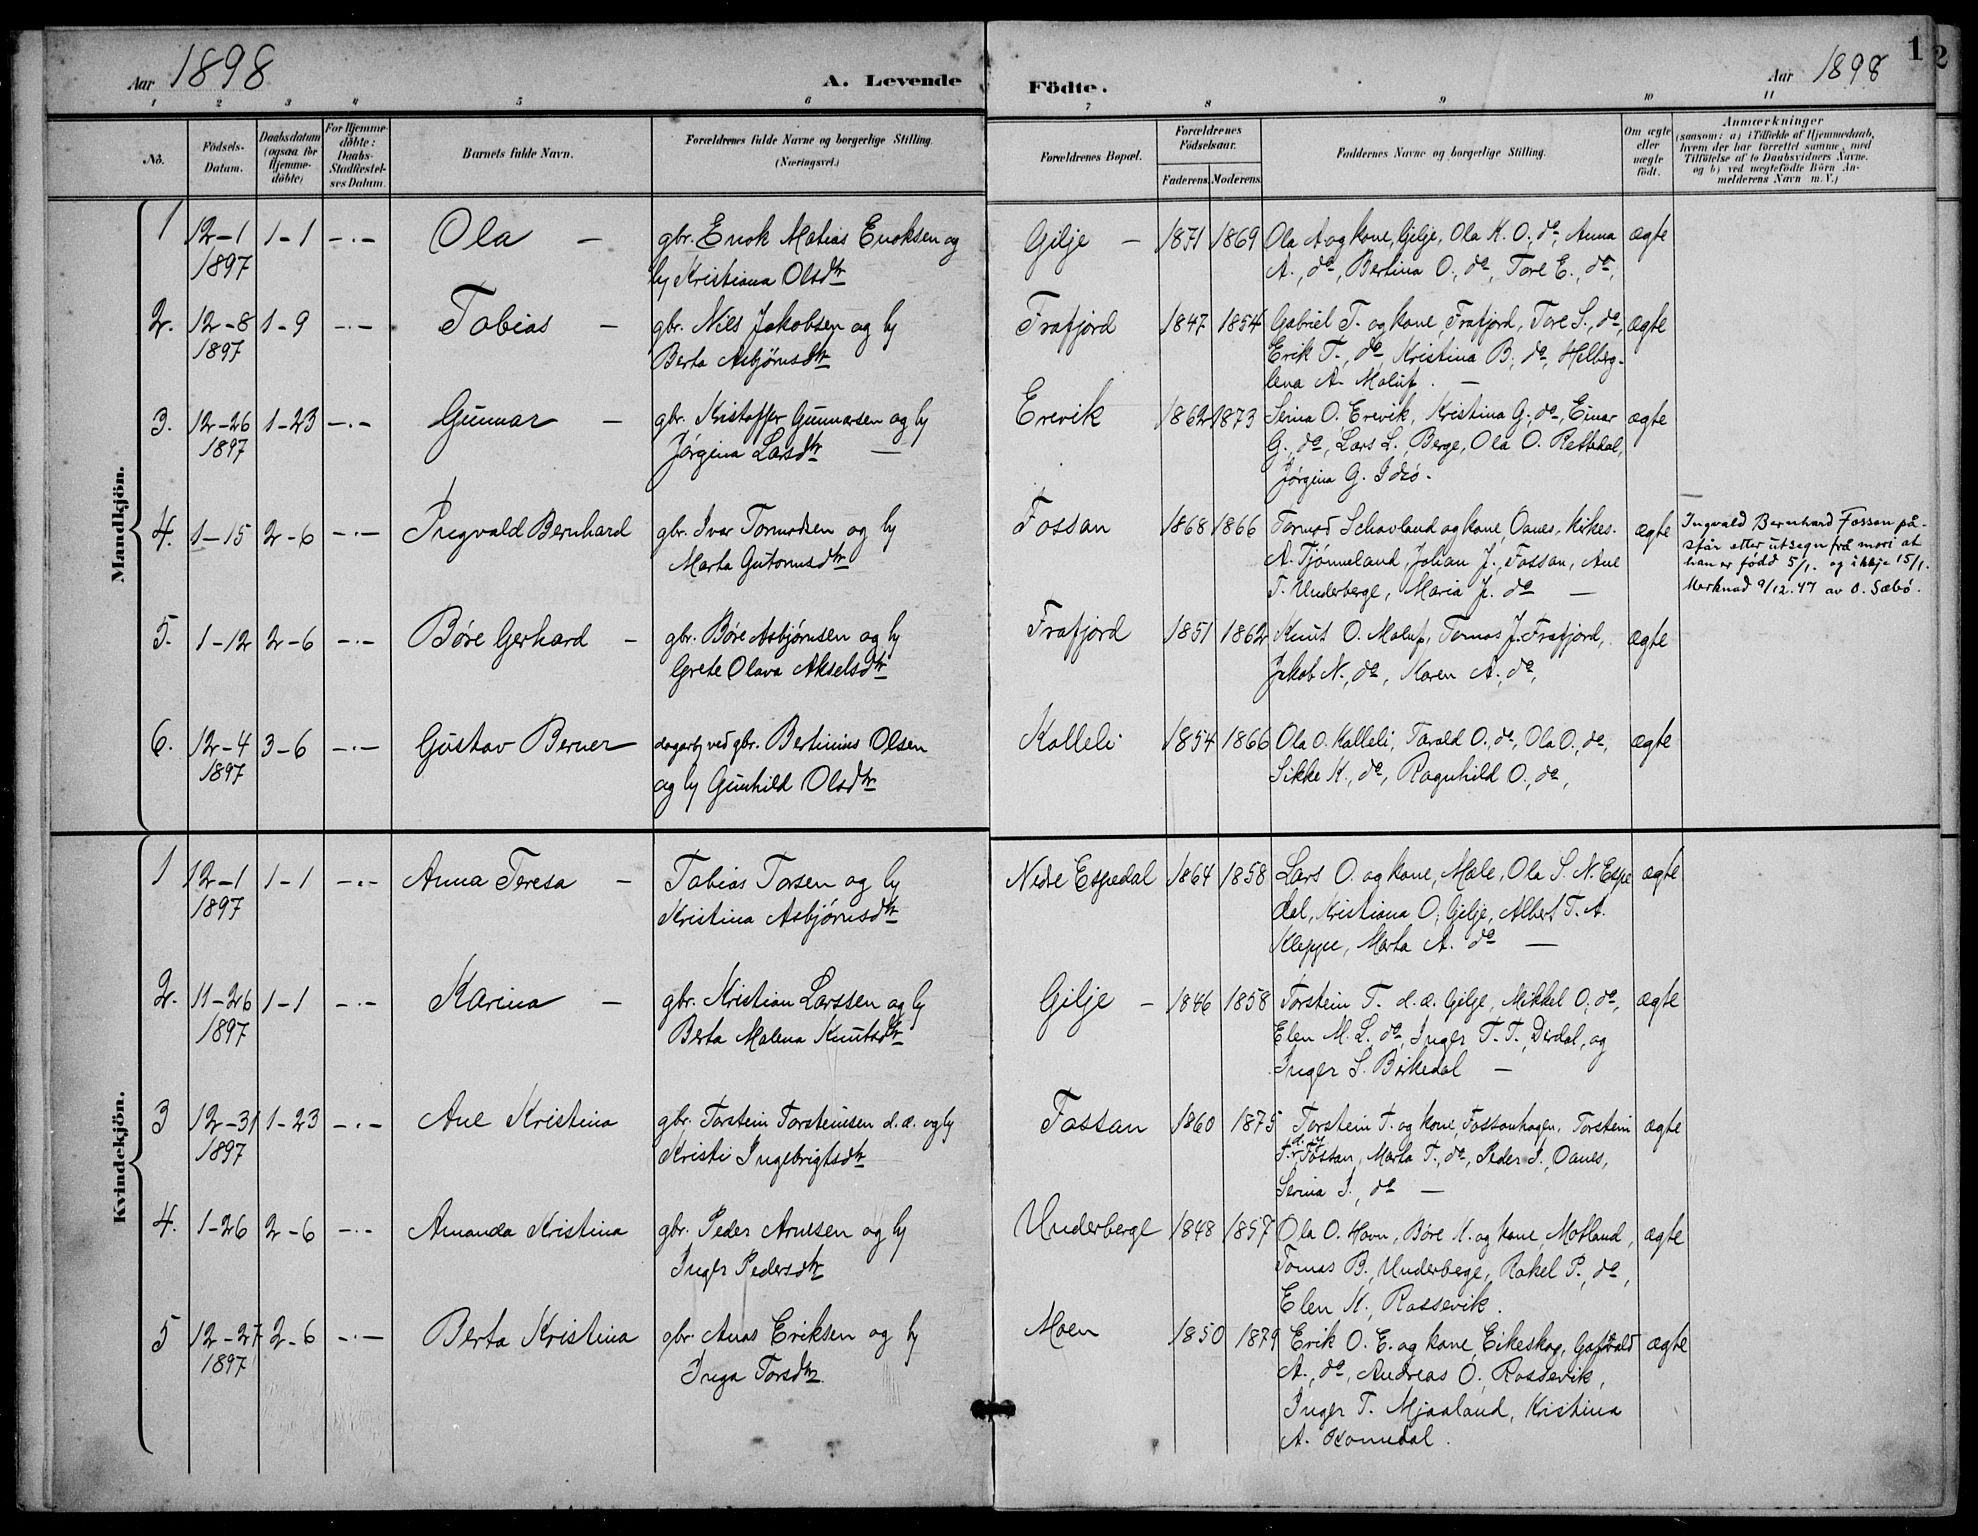 1 2
Aar 1898 A. Levende Födte. Aar 1898
1 2 3 4 5 6 7 8 9 10 11
No.
Födsels-
Datum.
Daabsdatum
(ogsaa for
Hjemme-
döbte)
For Hjemme-
döbte:
Daabs-
Stadfæstel-
ses Datum
Barnets fulde Navn.
Forældrenes fulde Navne og borgerlige Stilling.
(Næringsvei.)
Forældrenes Bopæl.
Forældrenes
Födselsaar.
Faderens. Moderens.
Faddernes Navne og borgerlige Stilling.
Om ægte
eller
uægte
födt.
Anmærkninger
(saasom: a) i Tilfælde af Hjemmedaab,
hvem der har forrettet samme, med
Tilföielse af to Daabsvidners Navne.
og b) ved uægtefödte Börn An-
melderens Navn m. V.)
Mandkjön.
1 12-1 1-1 -.- Ola - gbr. Enok Matias Enoksen og Gilje - 1871 1869 Ola A og kone, Gilje, Ola K. O., do, Anna ægte
1897 hy Kristiana Olsdtr A., do, Bertina O., do, Tore E., do,
2. 12-8 1-9 -.- Tobias - gbr. Niels Jakobsen og hy Frafjord 1847 1854 Gabriel T. og kone, Frafjord, Tore S., do, ægte
1897 Berta Asbjørnsdtr Erik T., do, Kristina B., do, Helberg-
lena A. Maluf. -
3. 12-26 1-23 -.- Gunnar - gbr. Kristoffer Gunnarsen og hy Erevik 1862 1873 Serina O. Erevik, Kristina G., do, Einar ægte
1897 Jørgina Larsdtr - G., do, Lars L., Berge, Ola O. Rettedal,
Jørgina G. Idsø.
4. 1-15 2-6 -.- Ingvald Bernhard gbr. Ivar Tormodsen og hy Fossan 1868 1866 Tormod Schavland og kone, Oanes, Kikes. ægte
Marta Gutormsdtr A. Tjønneland, Johan J., Fossan, Ane
T. Underberge, Maria J. do -
Ingvald Bernhard Fossan på-
står etter utsegn frå mori at
han er fødd 5/1. og ikkje 15/1.
Merknad 9/12.47 av O. Sæbø.
5. 1-12 2-6 -.- Børe Gerhard - gbr. Børe Asbjørnsen og hy Frafjord 1851 1862 Knut O. Maluf, Tomas J. Frafjord, ægte
Grete Olava Akselsdtr Jakob N., do, Karen A., do,
6. 12-4 3-6 -.- Gustav Berner dagarb. ved gbr. Bertinius Olsen Kalleli 1854 1866 Ola O. Kalleli, Tarald O., do, Ola O., do, ægte
1897 og hy Gunhild Olsdtr Sikke K., do, Ragnhild O., do,
Kvindekjön.
1 12-1 1-1 -.- Anna Teresa - Tobias Torsen og hy Nedre Espedal 1864 1858 Lars O. og kone, Mæle, Ola S. N. Espe ægte
1897 Kristina Asbjørnsdtr dal, Kristiana O., Gilje, Albert T. A.
Kleppe, Marta A. do -
2. 11-26 1-1 -.- Karina - gbr. Kristian Larssen og hy Gilje - 1846 1858 Torstein T. d.æ. Gilje, Mikkel O., do, ægte
1897 Berta Malena Knutsdtr Elen M. L., do, Inger T. T., Dirdal, og
Inger S. Birkedal -
3 12-31 1-23 -.- Ane Kristina gbr. Torstein Torsteinsen d.æ. og hy Fossan 1860 1875 Torstein T. og kone, Fossanhagen, Torstein ægte
1897 Kristi Ingebrigtsdtr T. d.y. Fossan, Marta T., do, Peder I., Oanes,
Serina I., do -
4. 1-26 2-6 -.- Amanda Kristina gbr. Peder Arnesen og hy Underberge 1848 1857 Ola O. Havn, Børe K. og kone, Motland, ægte
Inger Pedersdtr Tomas B., Underberge, Rakel P., do,
Elen K., Rossevik.
5 12-27 2-6 -.- Berta Kristina gbr. Anas Eriksen og hy Moen 1850 1879 Erik O. E. og kone, Eikeskog, Gotvald ægte
1897 Inga Torsdtr. A., do, Andreas O., Rossevik,
Inger T. Mjaaland, Kristina
A. Komedal.